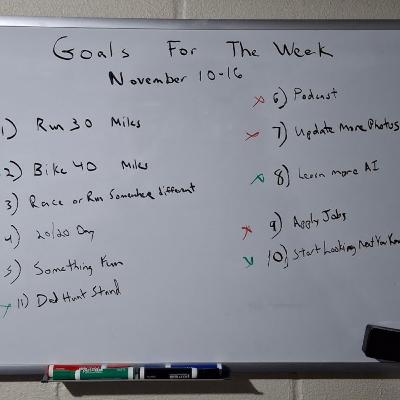 Goals For The Week
November 10-16
1) Run 30 Miles
2) Bike 40 Miles
3) Race or Run Somewhere different
4) 20/20 Day
5) Something Fun
11) Dad Hunt Stand
6) Podcast
7) Update More Photos
8) Learn more AI
9) Apply Jobs
10) Start Looking Next You Know